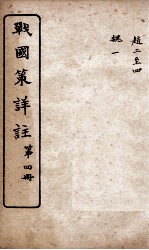 趙二至四
魏一
戰國策詳註 第四冊